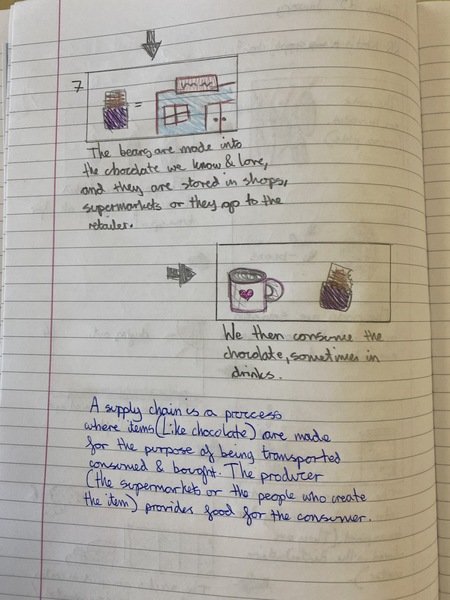 7
=
The beans are made into
the chocolate we know & love,
and they are stored in shops,
supermarkets or they go to the
retailer.
We then consume the
chocolate, sometimes in
drinks.
A supply chain is a proccess
where items (Like chocolate) are made
for the purpose of being transported
consumed & bought. The producer
(the supermarkets or the people who create
the item) provides food for the consumer.